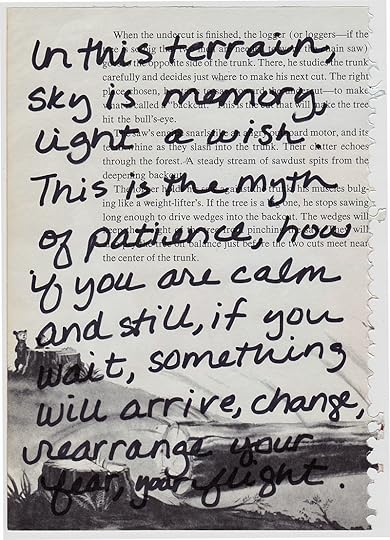 In this terrain,
sky is memory,
light a wish.
This is the myth
of patience, how
if you are calm
and still, if you
wait, something
will arrive, change,
rearrange your
fear, your flight.
When the undercut is finished, the logger (or loggers—if the
is big saw)
the opposite side of the trunk. There, he studies the trunk
carefully and decides just where to make his next cut. The right
chosen, the cut—to make
called a "backcut." This is the cut that will make the tree
hit the bull's-eye.
saw's snarls motor, and its
shine as they slash into the trunk. Their clatter echoes
through the forest. A steady stream of sawdust spits from the
deepening
The the trunk, his muscles bulg-
ing like a weight-lifter's. If the tree is a big one, he stops sawing
long enough to drive wedges into the backcut. The wedges will
the pinching will
balance just before the two cuts meet near
the center of the trunk.